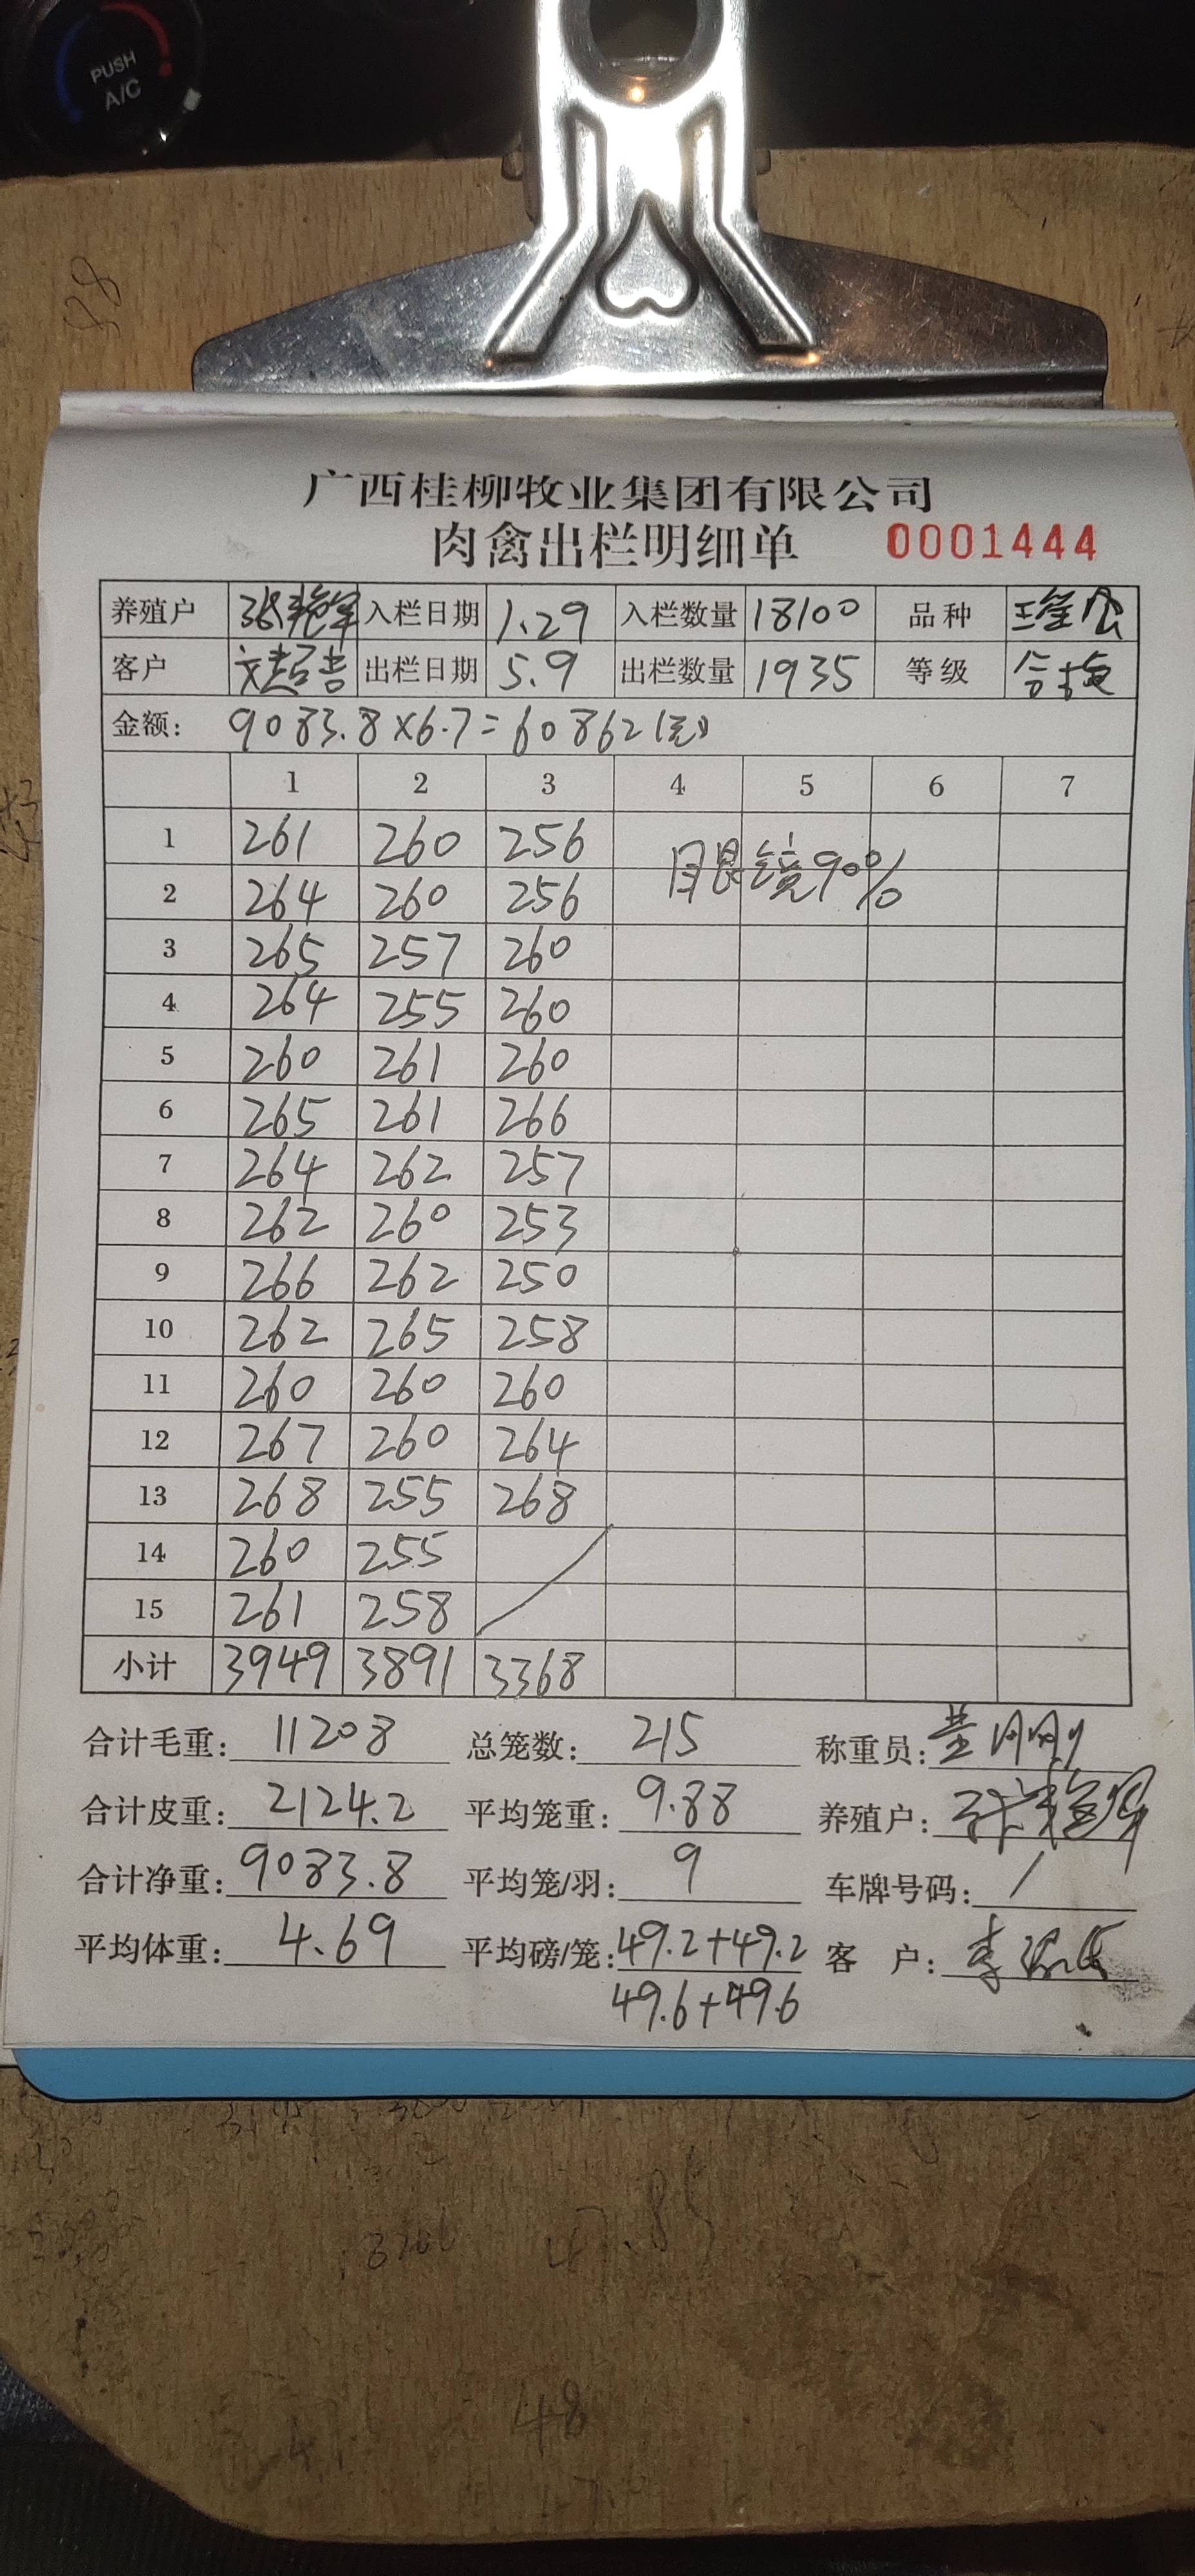 PUSH
A/C
88
广西桂柳牧业集团有限公司
肉禽出栏明细单 0001444
养殖户 张艳军 入栏日期 1.29 入栏数量 18100 品种 三黄公
客户 出栏日期 5.9 出栏数量 1935 等级 合格
金额: 9083.8×6.7=60862(元)
1 2 3 4 5 6 7
1 261 260 256 眼镜90%
2 264 260 256
3 265 257 260
4 264 255 260
5 260 261 260
6 265 261 266
7 264 262 257
8 262 260 253
9 266 262 250
10 262 265 258
11 260 260 260
12 267 260 264
13 268 255 268
14 260 255
15 261 258
小计 3949 3891 3368
合计毛重: 11208 总笼数: 215 称重员:
合计皮重: 2124.2 平均笼重: 9.88 养殖户: 张艳军
合计净重: 9083.8 平均笼/羽: 9 车牌号码: /
平均体重: 4.69 平均磅/笼: 49.2+49.2 客 户:
49.6+49.6
48